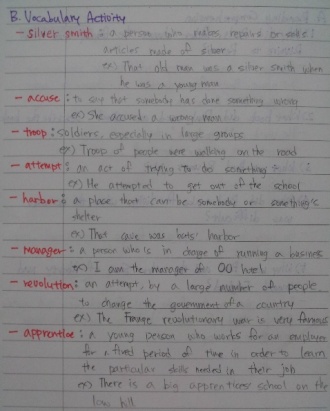 B. Vocabulary Activity
- silver smith : a person who makes, repairs or sells
articles made of silver
ex) That old man was a silver smith when
he was a young man
- accuse : to say that somebody has done something wrong
ex) She accused a wrong man
- troop : soldiers, especially in large groups
ex) Troop of people were walking on the road
- attempt : an act of trying to do something
ex) He attempted to get out of the school
- harbor : a place that can be somebody or something's
shelter
ex) That cave was harbor
- manager : a person who is in charge of running a business
ex) I am the manager of OO hotel
- revolution : an attempt, by a large number of people
to change the government of a country
ex) The revolutionary war is very famous
- apprentice : a young person who works for an employer
for a fixed period of time in order to learn
the particular skills needed in their job
ex) There is a big apprentices school on the
hill